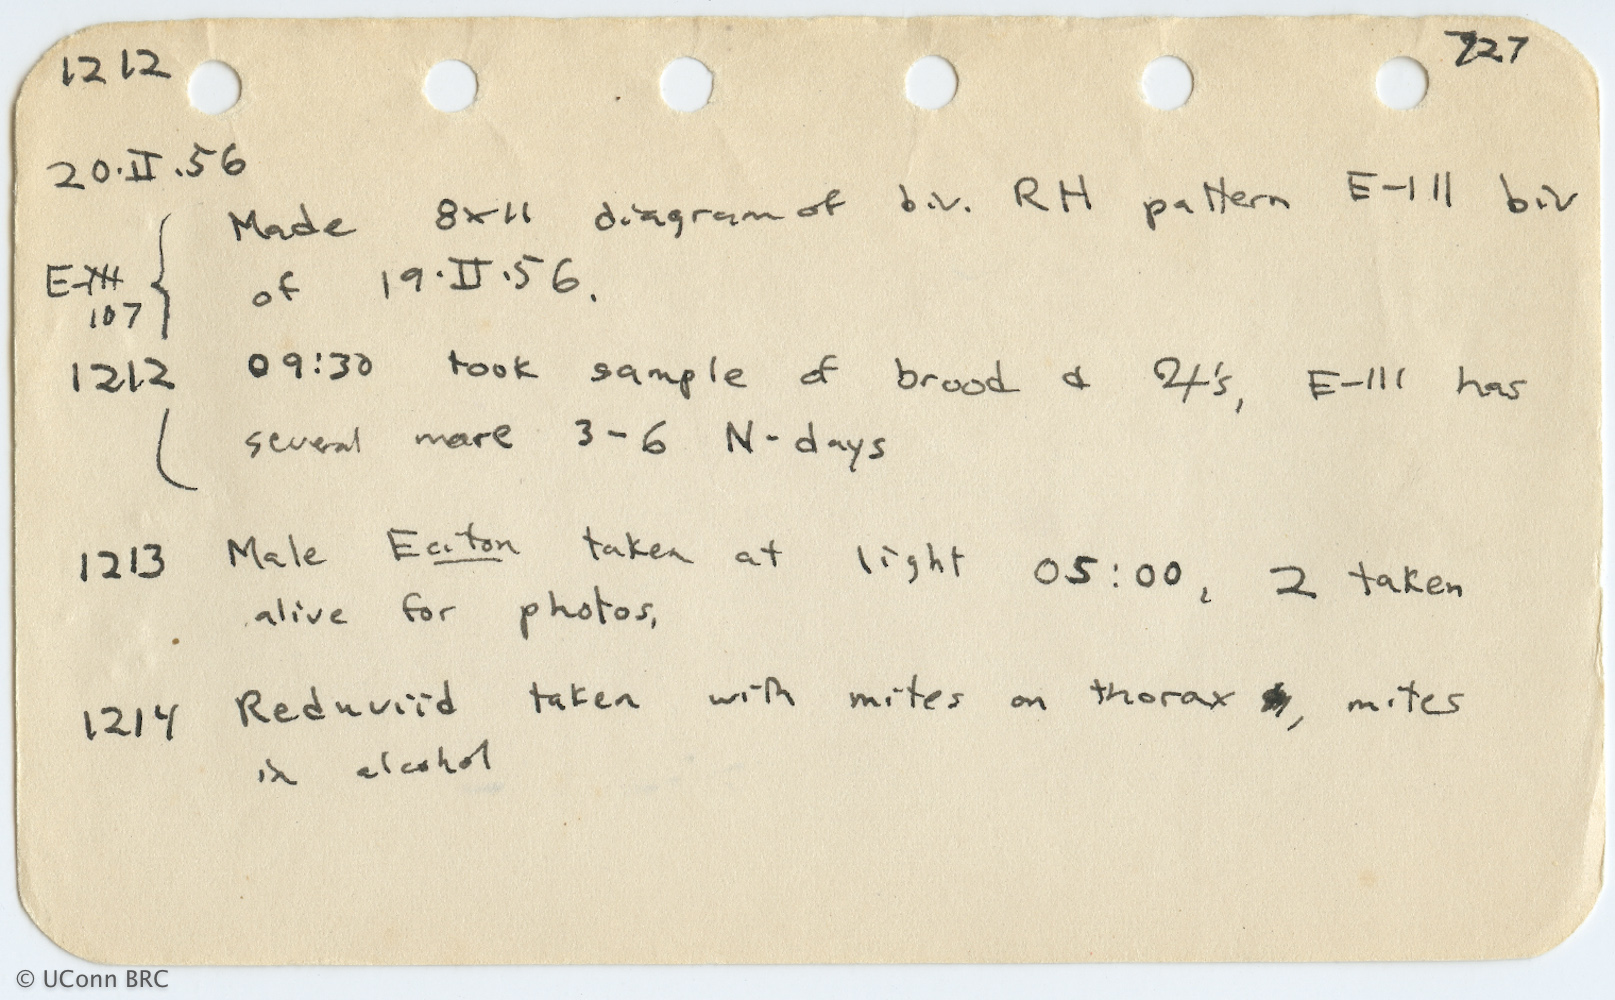 1212 727
20.II.56
Made 8x11 diagram of biv. RH pattern E-III biv
E-III
107
of 19.II.56.
1212 09:30 took sample of brood & ♀'s, E-III has
several more 3-6 N-days
1213 Male Eciton taken at light 05:00, 2 taken
alive for photos,
1214 Reduviid taken with mites on thorax, mites
in alcohol
© UConn BRC